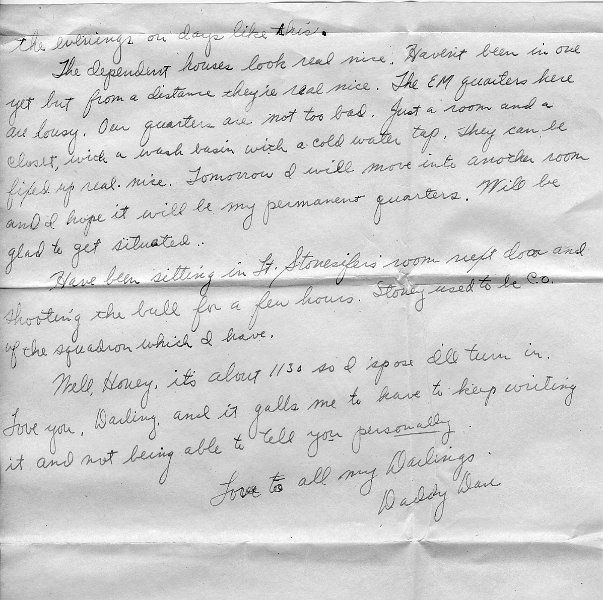 the evenings on days like this.
The dependent houses look real nice. Haven't been in one
yet but from a distance they're real nice. The EM quarters here
are lousy. Our quarters are not too bad. Just a room and a
closet, with a wash basin with a cold water tap. They can be
fixed up real nice. Tomorrow I will move into another room
and I hope it will be my permanent quarters. Will be
glad to get situated..
Have been sitting in Lt. Stonesifer's room next door and
shooting the bull for a few hours. Stoney used to be C.O.
of the squadron which I have.
Well, Honey, it's about 1130 so I 'spose I'll turn in.
Love you, Darling, and it galls me to have to keep writing
it and not being able to tell you personally.
Love to all my Darlings.
Daddy Dan